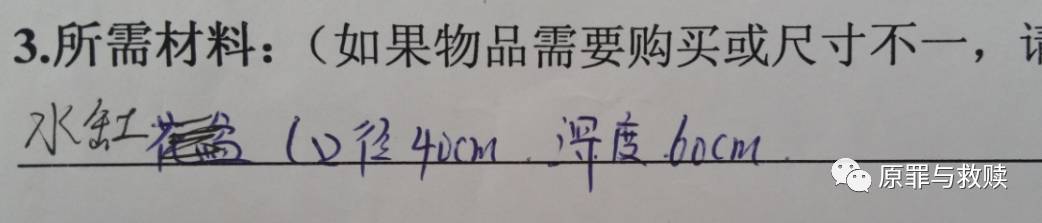 3.所需材料:(如果物品需要购买或尺寸不一,请
水缸 口径40cm 深度60cm
原罪与救赎